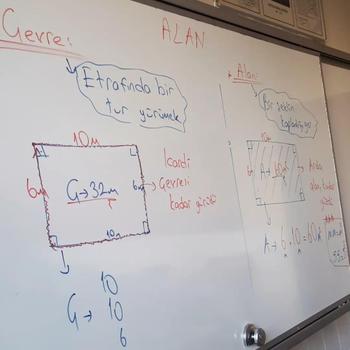 Çevre:
ALAN
Etrafında bir
tur yürümek
10m
6m
6m
Ç→32m
10m
Icardi
Çevresi
kadar yürüdü
10
Ç→ 10
6
Alan:
Bir şeklin
kapladığı yer
10m
6m
A→60m²
alan kadar
A→ 6.10=60m²